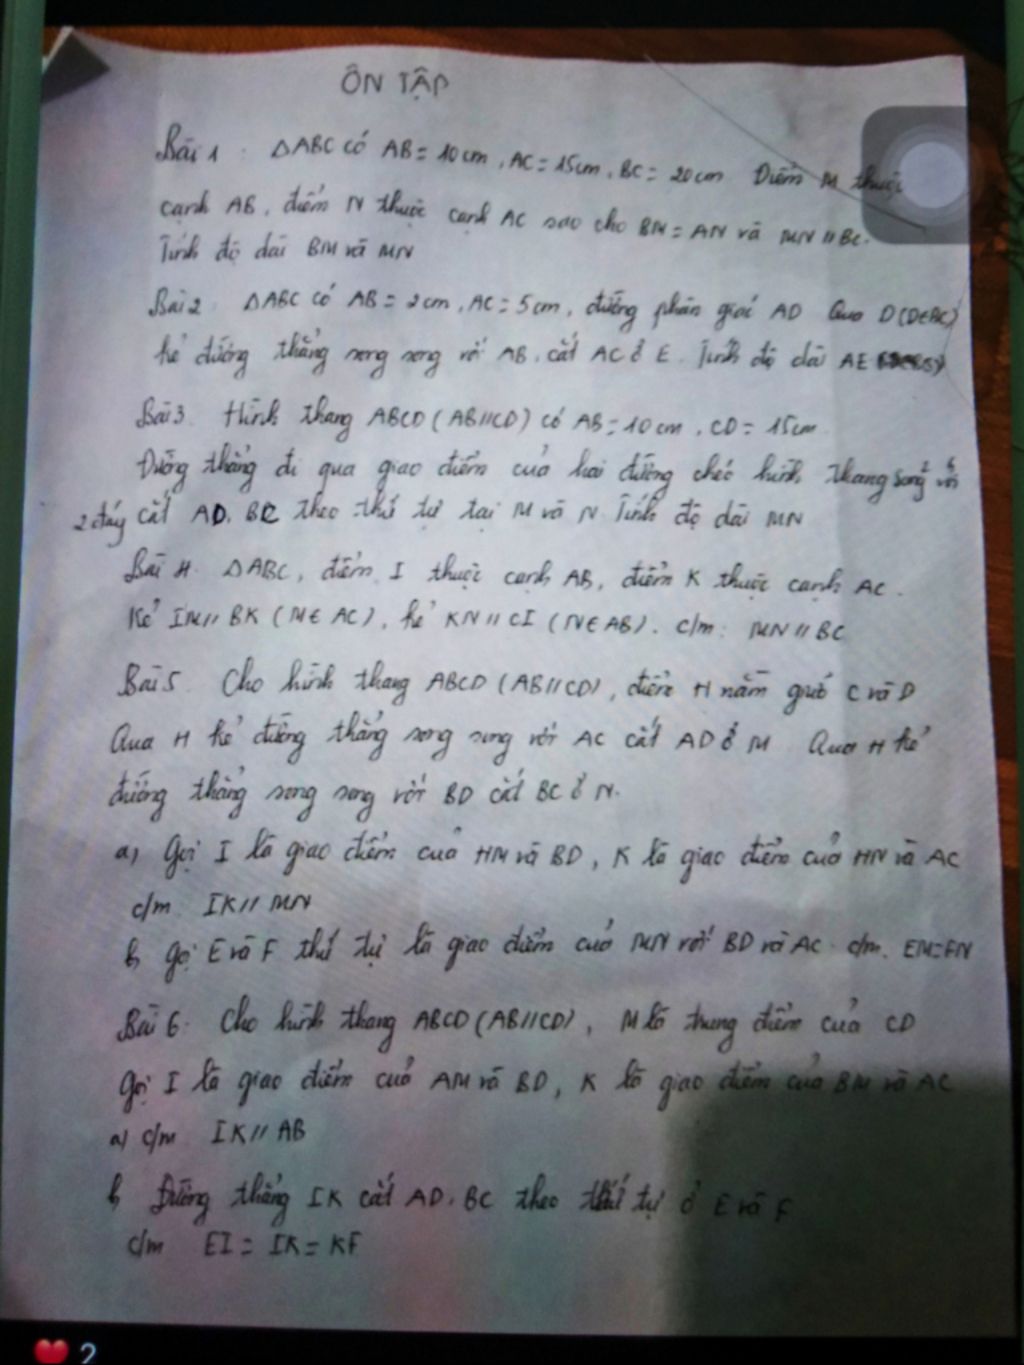 ÔN TẬP
Bài 1 : ΔABC có AB = 10cm, AC = 15cm, BC = 20cm Điểm M thuộc
cạnh AB, điểm N thuộc cạnh AC sao cho BM = AN và MN // BC.
Tính độ dài BM và MN
Bài 2 ΔABC có AB = 2cm, AC = 5cm, đường phân giác AD Qua D (D∈BC)
kẻ đường thẳng song song với AB, cắt AC ở E. Tính độ dài AE
Bài 3. Hình thang ABCD (AB//CD) có AB = 10cm, CD = 15cm
Đường thẳng đi qua giao điểm của hai đường chéo hình thang song² với
2 đáy cắt AD, BC theo thứ tự tại M và N Tính độ dài MN
Bài 4. ΔABC, điểm I thuộc cạnh AB, điểm K thuộc cạnh AC.
Kẻ IM // BK (M∈ AC), kẻ KN // CI (N∈AB). c/m: MN // BC
Bài 5. Cho hình thang ABCD (AB//CD), điểm H nằm giữa C và D
Qua H kẻ đường thẳng song song với AC cắt AD ở M Qua H kẻ
đường thẳng song song với BD cắt BC ở N.
a) Gọi I là giao điểm của HM và BD, K là giao điểm của HN và AC
c/m IK // MN
b, Gọi E và F thứ tự là giao điểm của MN với BD và AC. c/m. EM=FN
Bài 6: Cho hình thang ABCD (AB//CD), M là trung điểm của CD
Gọi I là giao điểm của AM và BD, K là giao điểm của BM và AC
a) c/m IK // AB
b, Đường thẳng IK cắt AD, BC theo thứ tự ở E và F
c/m EI = IK = KF
2